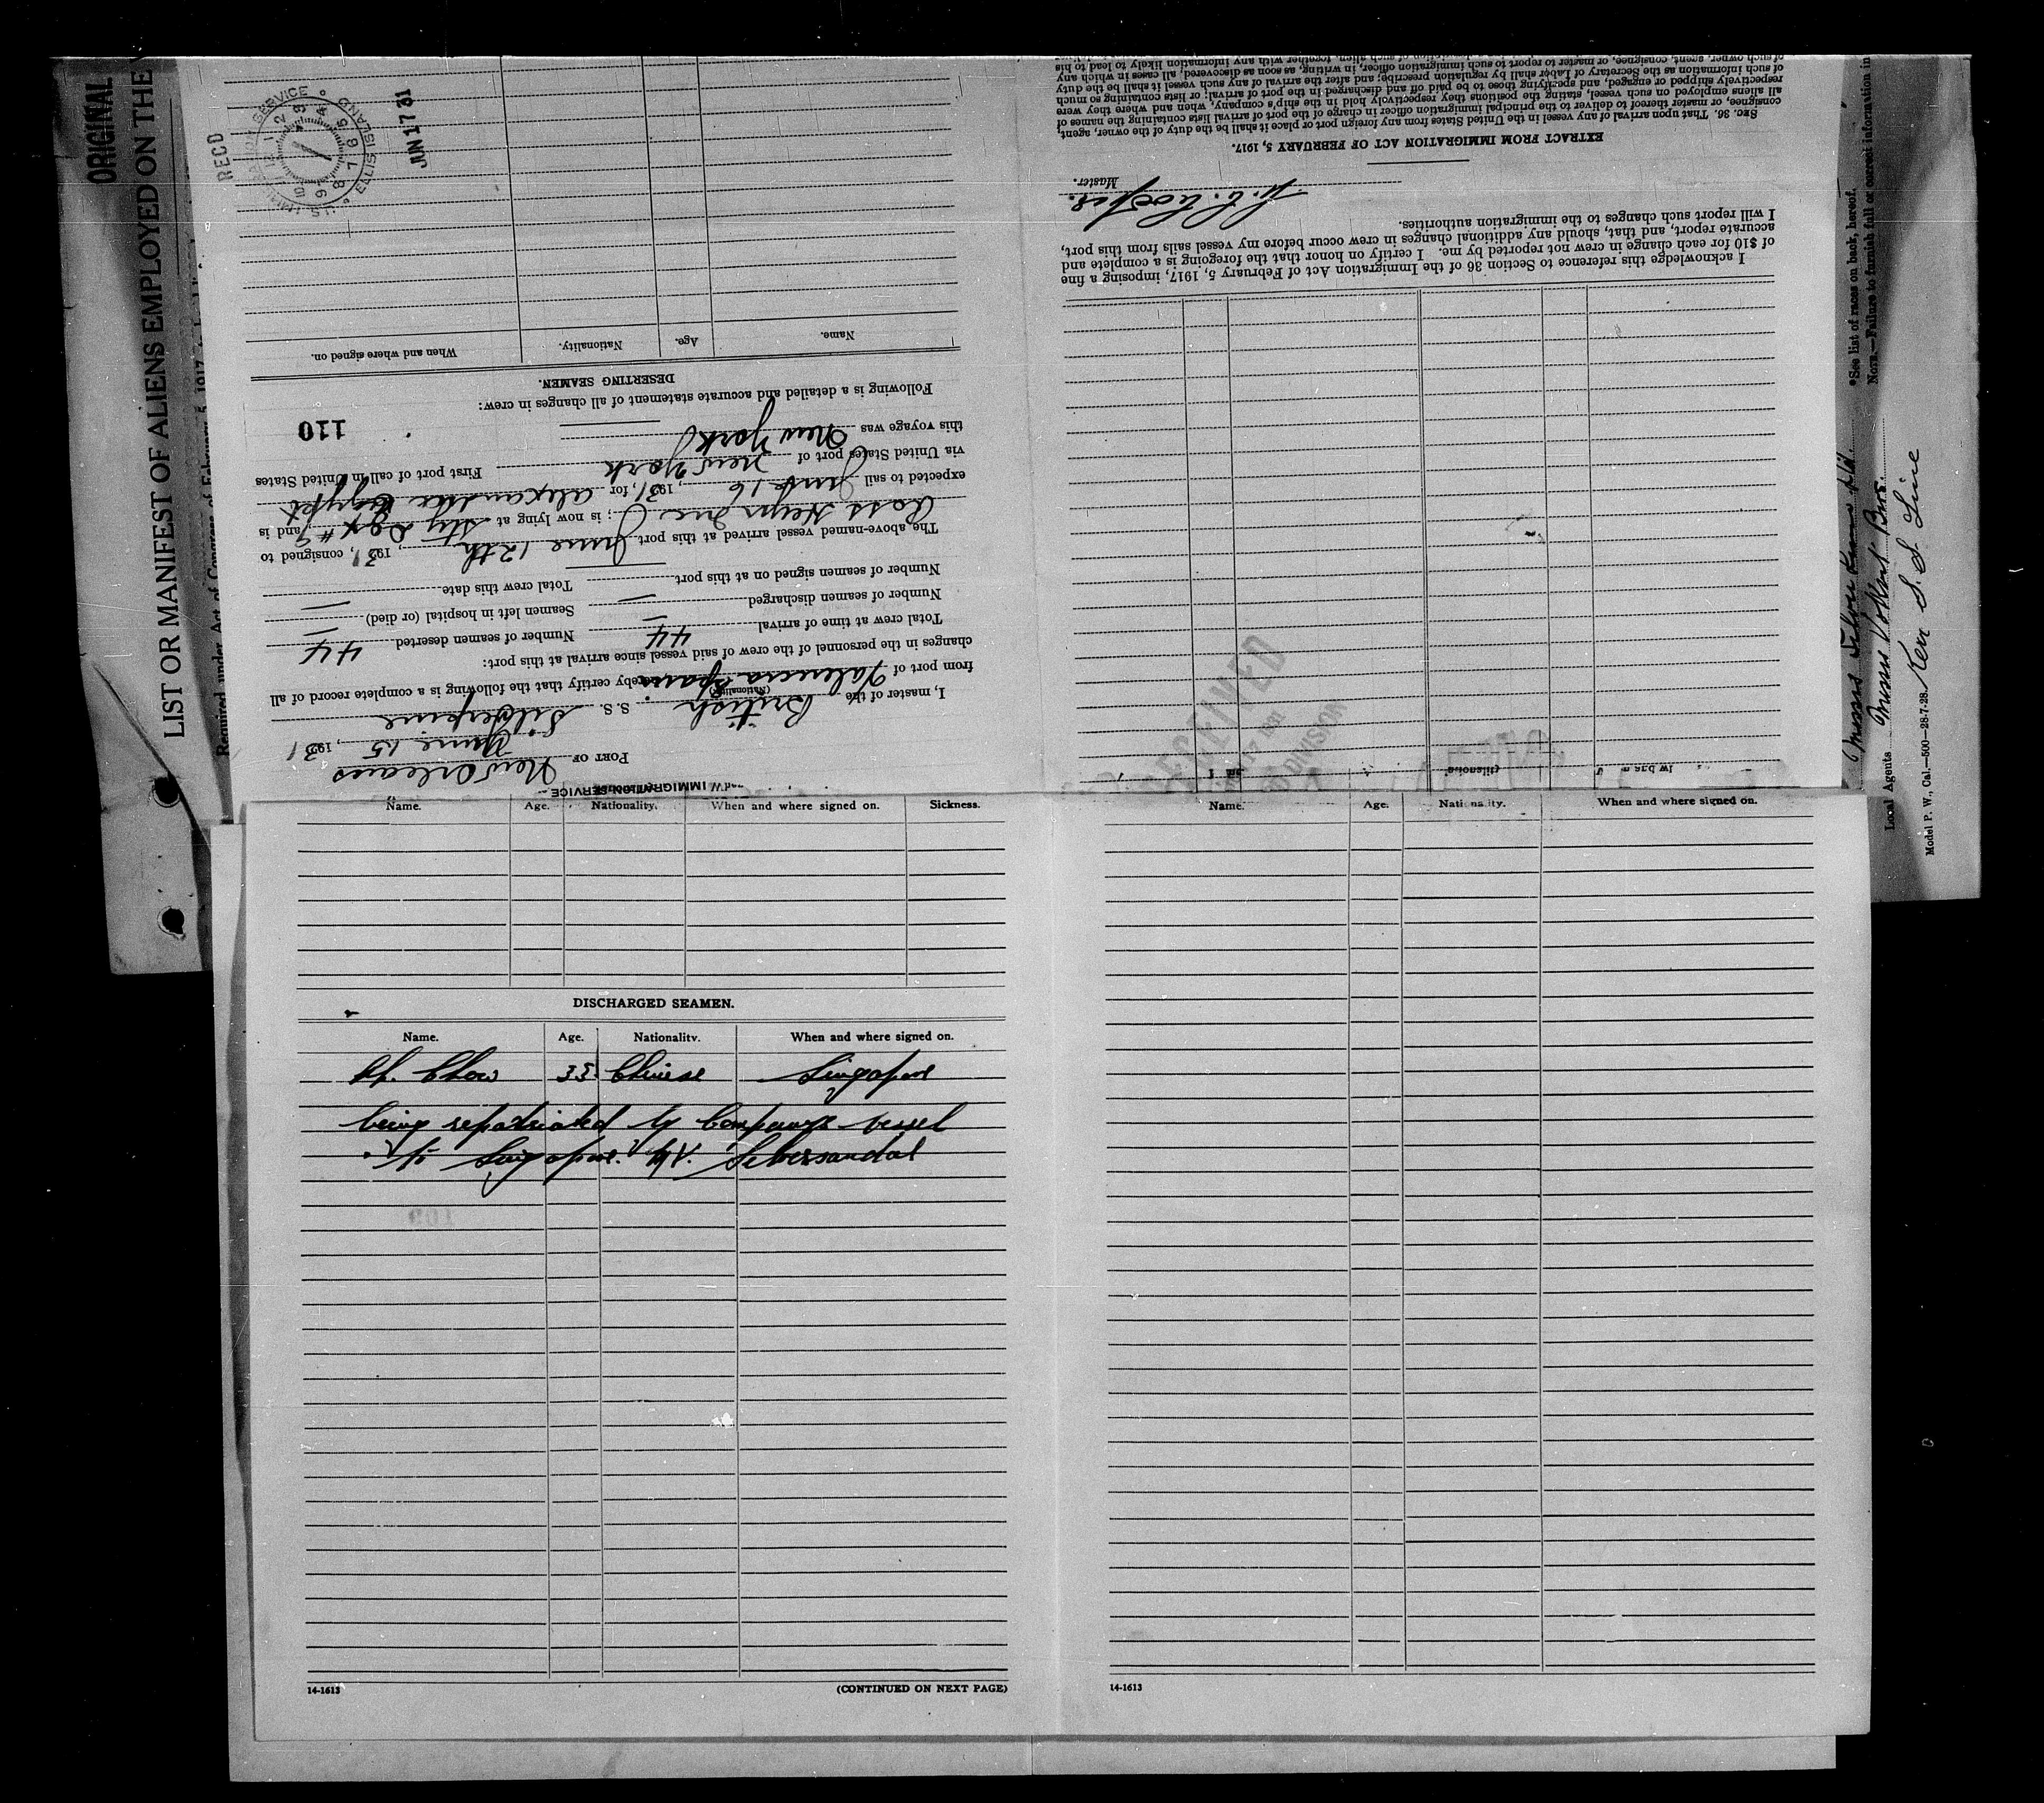 ORIGINAL
LIST OR MANIFEST OF ALIENS EMPLOYED ON THE
Required under Act of Congress of February 5, 1917
IMMIGRATION SERVICE
PORT OF New Orleans
June 15, 1931
I, master of the British S. S. Silverpine
(Nationality)
from port of Valencia Spain hereby certify that the following is a complete record of all
changes in the personnel of the crew of said vessel since arrival at this port:
Total crew at time of arrival 44 Number of seamen deserted —
Number of seamen discharged — Seamen left in hospital (or died) —
Number of seamen signed on at this port — Total crew this date 44
The above-named vessel arrived at this port June 12th, 1931, consigned to
Ross Heyn Inc; is now lying at Sty Dox #9, and is
expected to sail June 16, 1931, for Alexandria Egypt
via United States port of New York First port of call in United States
this voyage was New York
110
Following is a detailed and accurate statement of all changes in crew:
DESERTING SEAMEN.
Name. Age. Nationality. When and where signed on.
REC'D
U.S. IMMIGRATION SERVICE
ELLIS ISLAND
JUN 17 31
I acknowledge this reference to Section 36 of the Immigration Act of February 5, 1917, imposing a fine
of $10 for each change in crew not reported by me. I certify on honor that the foregoing is a complete and
accurate report, and that, should any additional changes in crew occur before my vessel sails from this port,
I will report such changes to the immigration authorities.
Master.
EXTRACT FROM IMMIGRATION ACT OF FEBRUARY 5, 1917.
SEC. 36. That upon arrival of any vessel in the United States from any foreign port or place it shall be the duty of the owner, agent,
consignee, or master thereof to deliver to the principal immigration officer in charge of the port of arrival lists containing the names of
all aliens employed on such vessel, stating the positions they respectively hold in the ship's company, when and where they were
respectively shipped or engaged, and specifying those to be paid off and discharged in the port of arrival; or lists containing so much
of such information as the Secretary of Labor shall by regulation prescribe; and after the arrival of any such vessel it shall be the duty
of such owner, agent, consignee, or master to report to such immigration officer, in writing, as soon as discovered, all cases in which any
RECEIVED
DIVISION
*See list of races on back, hereof.
NOTE.—Failure to furnish full or correct information in
Local Agents
Kerr S. S. Line
Model P. W., Cal.—500—28-7-28.
Name. Age. Nationality. When and where signed on. Sickness.
DISCHARGED SEAMEN.
Name. Age. Nationality. When and where signed on.
Ah. Chow 33 Chinese Singapore
being repatriated by Companys vessel
to Singapore. M.V. Silversandal
14-1613
(CONTINUED ON NEXT PAGE)
Name. Age. Nationality. When and where signed on.
14-1613